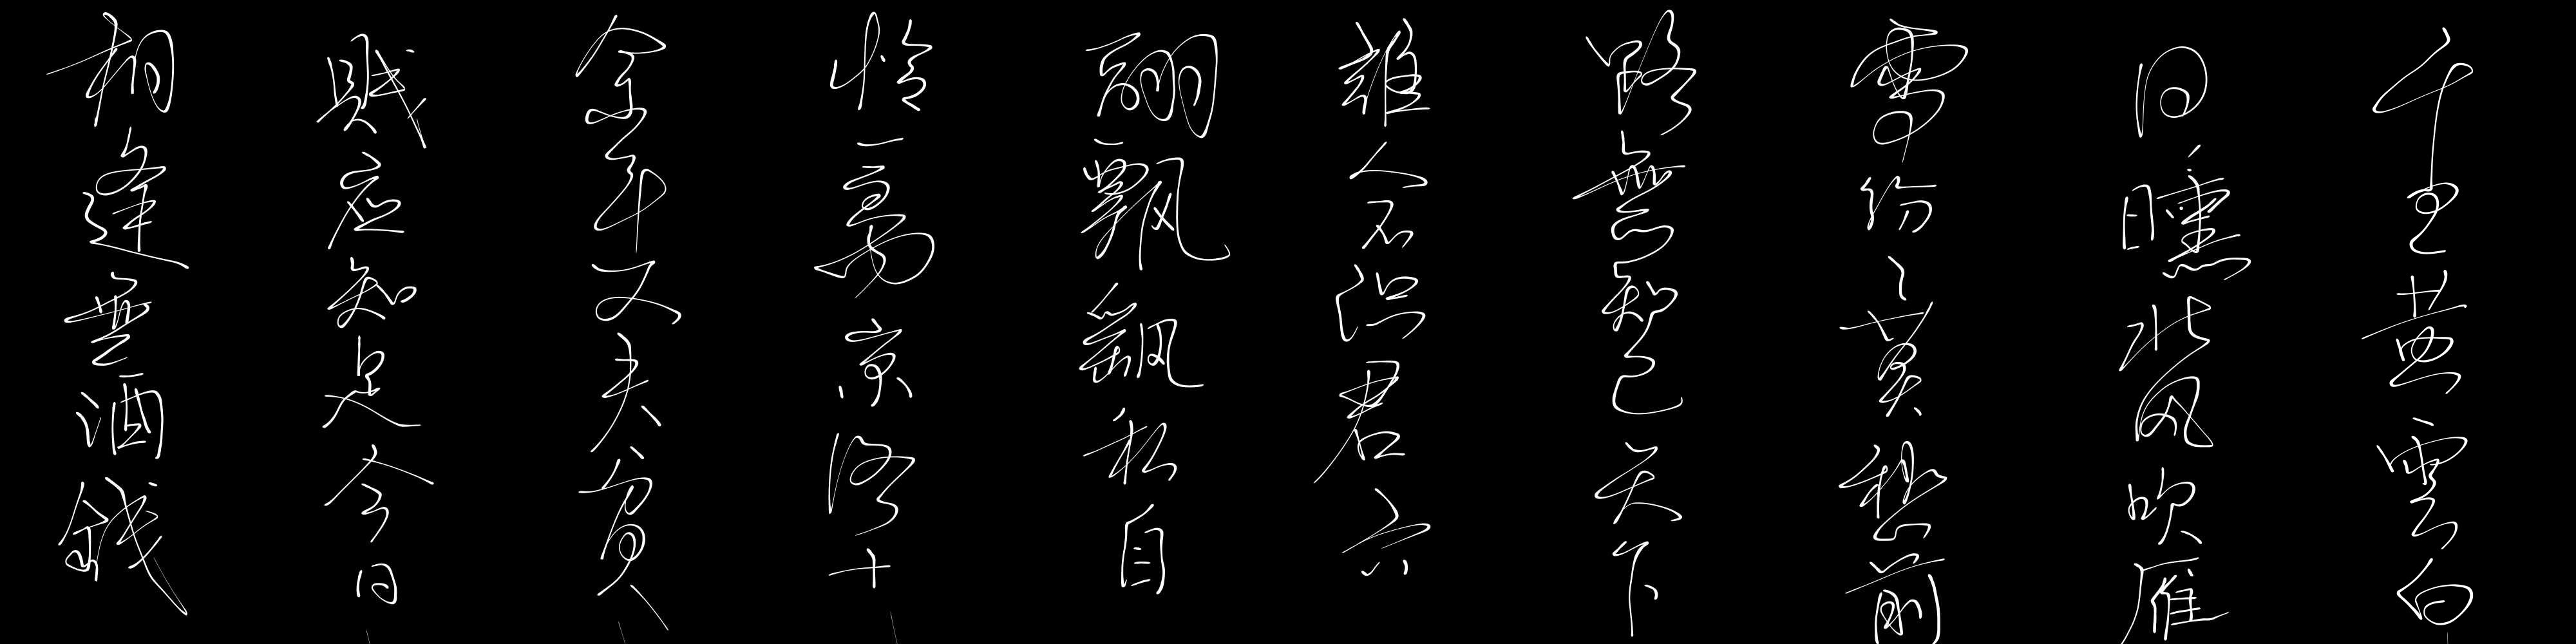 千里黄雲白
日曛北风吹雁
雪纷々莫愁前
路無知己天下
誰人不识君六
翮飄飖私自
怜一离京洛十
余年丈夫貧
賤应知足今日
相逢無酒錢